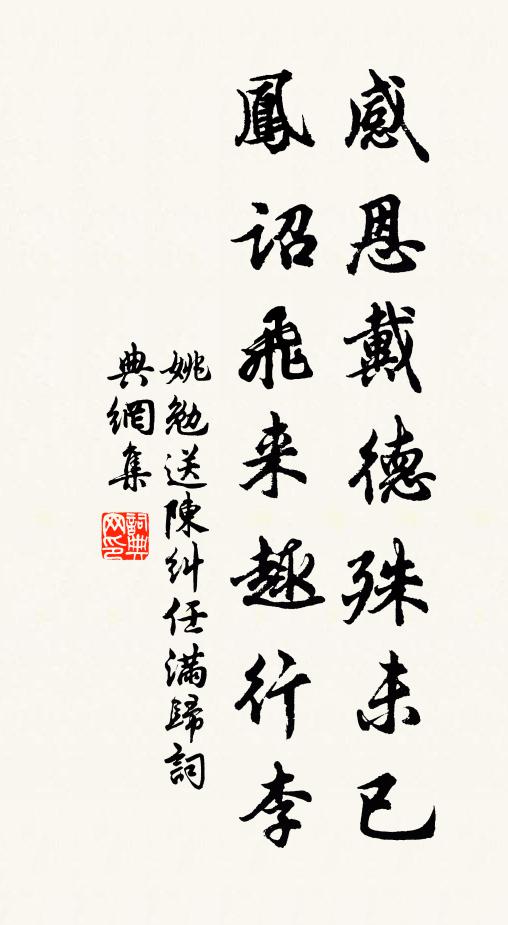 感恩戴德殊未已
鳳詔飛来趣行李
姚勉送陳糾任滿歸詞
典網集
詞典網印